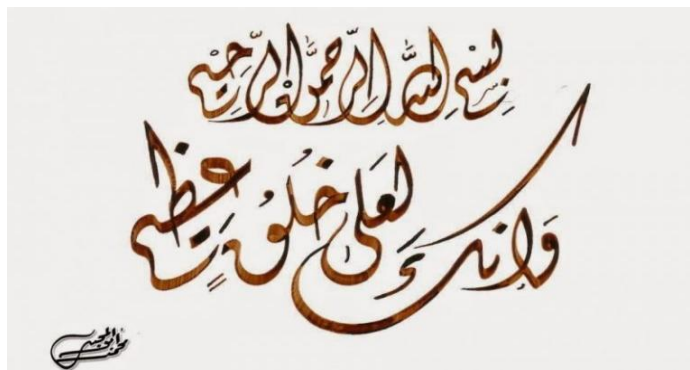 بسم الله الرحمن الرحيم
وَإنكَ لعَلى خُلُقٍ عظيمٍ
محمد